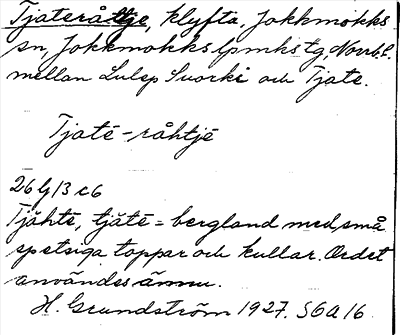 Tjateråttje, klyfta, Jokkmokks
sn, Jokkmokks lpmks tg, Norrb.l.
mellan Lulep Suorki och Tjate.
Tjatē-råhtjē
26 G/3 c6
Tjåhtē, tjåtē = bergland med små
spetsiga toppar och kullar. Ordet
användes ännu.
H. Grundström 1927. S6A16